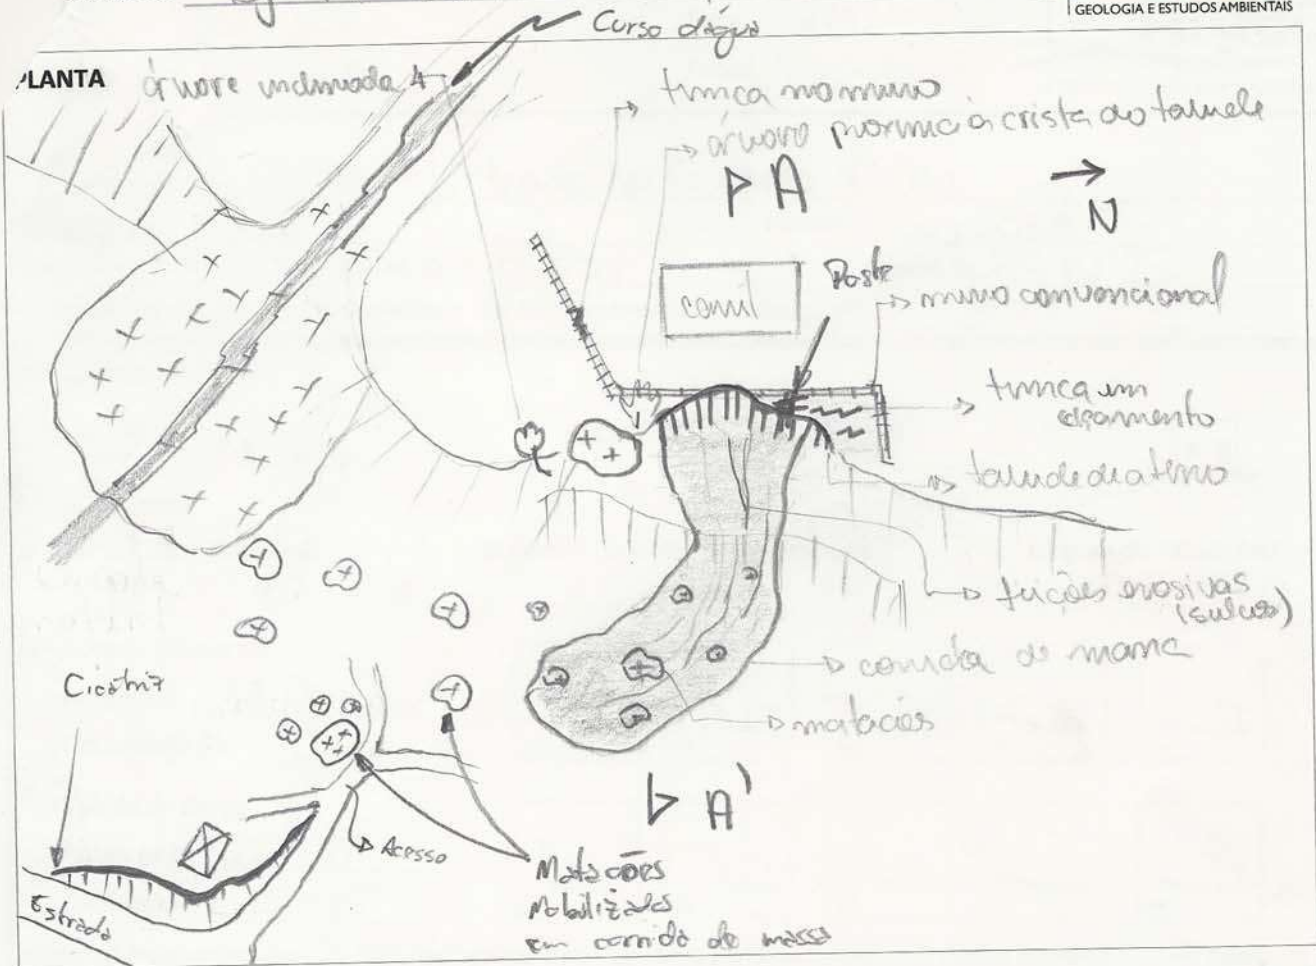 GEOLOGIA E ESTUDOS AMBIENTAIS
Curso d'água
PLANTA
árvore inclinada
trinca no muro
árvore proxima à crista do talude
A
N
canil
Poste
muro convencional
trinca em
talude de aterro
feições erosivas
(sulcos)
corrida de massa
matacões
Cicatriz
A'
Acesso
Estrada
Matacões
Mobilizados
em corrida de massa